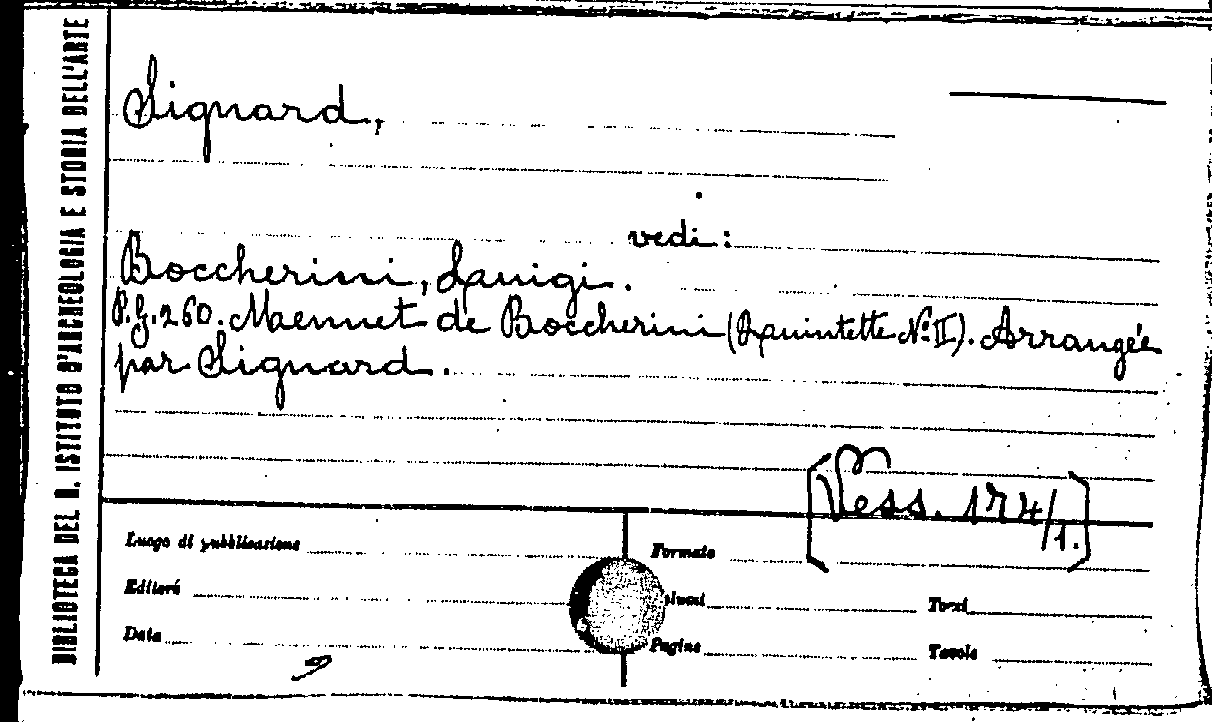 BIBLIOTECA DEL R. ISTITUTO D'ARCHEOLOGIA E STORIA DELL'ARTE
Signard,
vedi:
Boccherini, Luigi.
P.G. 260. Menuet de Boccherini (Quintette N° II). Arrangée
par Signard.
[Vess. 174/1.]
Luogo di pubblicazione
Formato
Editore
Tomi
Data
Pagine
Tavole